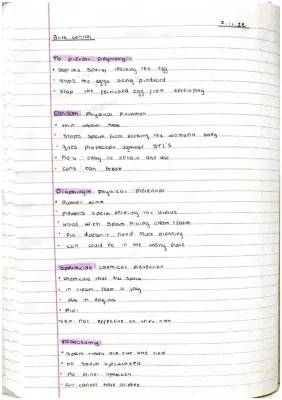 Birth control
To prevent pregnancy:
• Stop the sperm reaching the egg
• Stops the eggs being produced
• Stop the fertilised egg from developing
Condom: Physical Prevention
• thin rubber
• Stops sperm from entering the womans body
• gives protection against STI'S
• Pros easy to obtain and use
• cons can break
Diaphragm: Physical Prevention
• Rubber
• prevents sperm entering the uterus
• used with sperm killing cream/foam
• Pro doesn't need much planning
• con could be in the wrong place
Spermicide: chemical Prevention
• chemicals that kill sperm
• in cream, foam or jelly
• put in vagina
• Pro:
con: Not effective on their own
Vasectomy:
• Sperm tubes are cut and tied
• no sperm
• Pro minor operation
• Con cannot have children